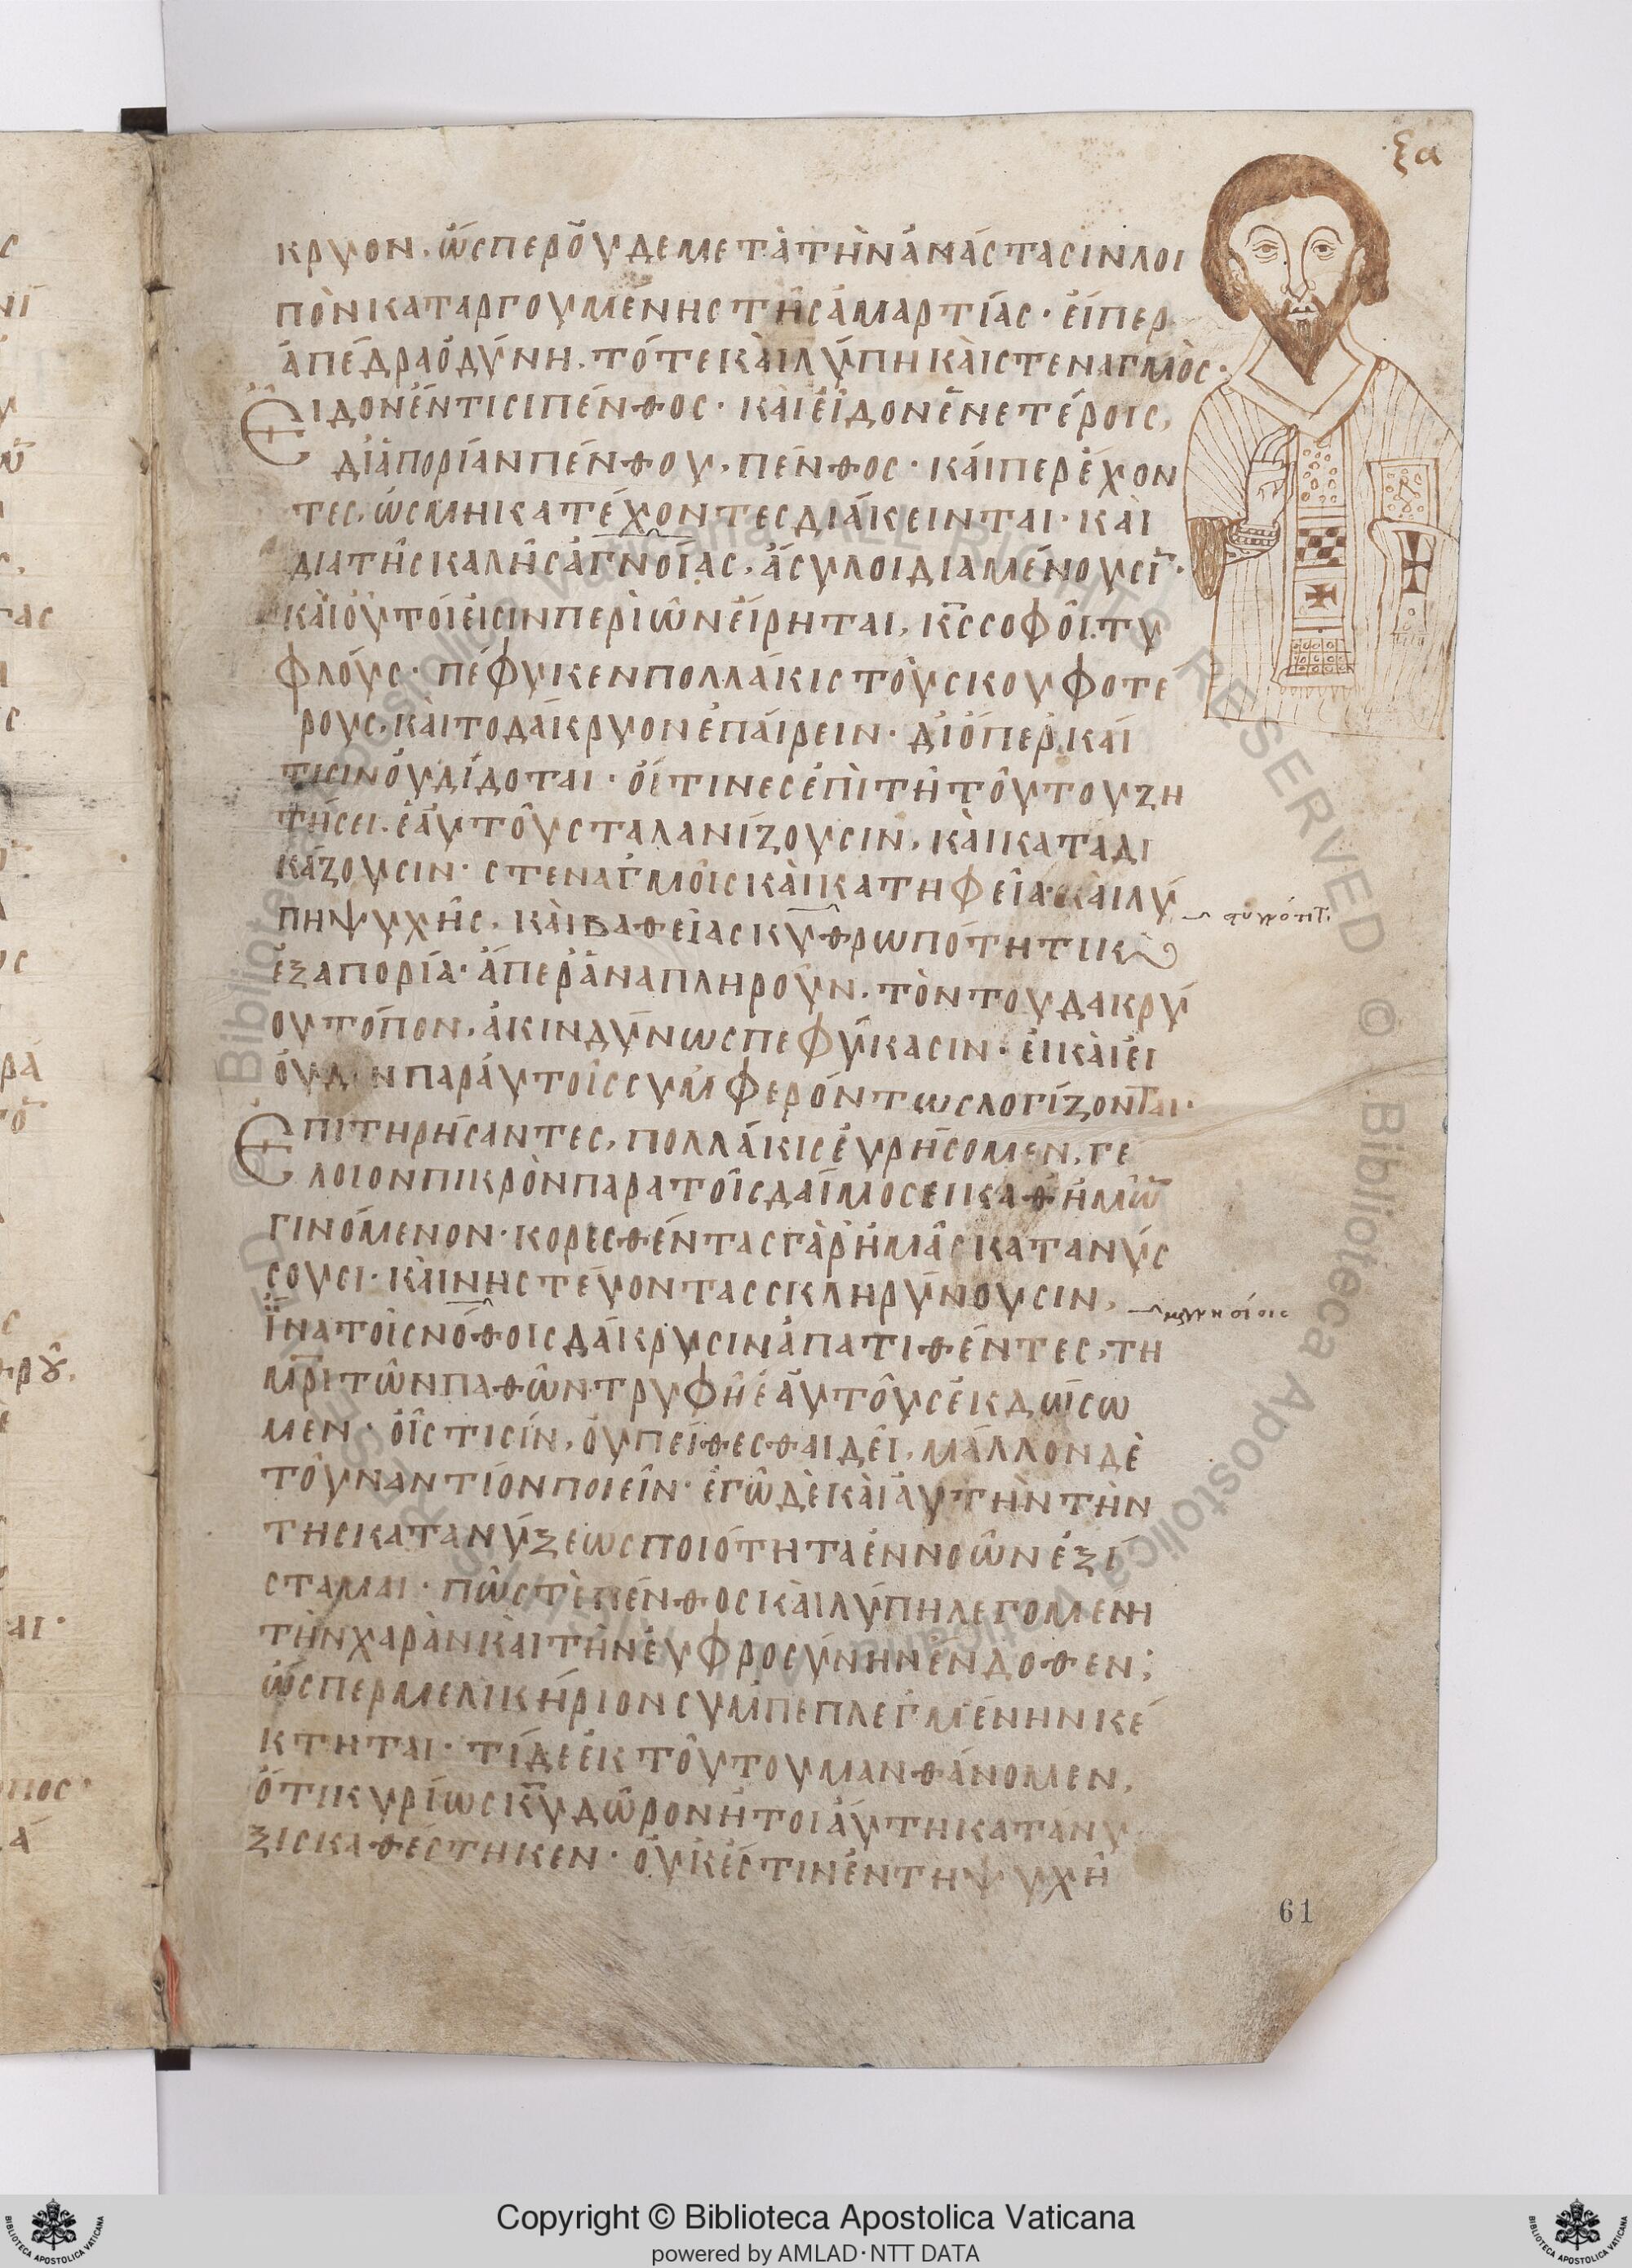 ξα
κρυον, ὥσπερ ὀυδε μετὰ τὴν ἀνάστασιν λοι
πὸν καταργουμένης τῆς ἁμαρτίας · ἐίπερ
ἀπέδρα ὀδύνη, τότε κὰι λύπη κὰι στεναγμὸς ·
Ἐιδον ἐν τισι πένθος · κὰι ἐῖδον ἐν ἑτέροις,
διὰ πορίαν πένθου, πένθος · κάιπερ ἔχον
τες, ὡς μὴ κατέχοντες διάκεινται · κὰι
δια τῆς καλῆς ἀγνοίας, ἄσυλοι διαμένουσῑ ·
κὰι ὀυτόι ἐισιν περὶ ὧν ἐίρηται, κ̅ς̅ σοφοῖ τυ
φλόυς · πέφυκεν πολλάκις τὸυς κουφοτέ
ρους, κὰι το δάκρυον ἐπάιρειν · διόπερ, κάι
τισιν ὀυ δίδοται · ὅιτινες ἐπὶ τῆ τὀυτου ζη
τήσει, ἑαυτὀυς ταλανίζουσιν, κὰι καταδι
κάζουσιν · στεναγμοῖς κὰι κατηφεῖα · κὰι λύ
πη ψυχῆς, κὰι βαθεῖα σκυθρωπότητι κ(αι)
ἐξαπορία · ἅπερ ἀναπληροῦν, τὸν του δακρύ
ου τόπον, ἀκινδύνως πεφύκασιν · ἐι κὰι ἐι
ὀυδὲν παρ ἀυτοῖς συμφερόντως λογίζονται ·
Ἐπιτηρήσαντες, πολλάκις ἑυρήσομεν, γε
λοιον πικρὸν παρα τοῖς δάιμοσει καθ ἡμῶ̅
γινόμενον · κορεσθέντας γὰρ ἡμᾶς κατανύσ
σουσι · κὰι νηστέυοντας σκληρύνουσιν,
ἵνα τοῖς νόθοις δάκρυσιν ἀπατιθέντες, τη
μ̅ρ̅ι τῶν παθῶν τρυφῆ ἑαυτὀυς ἐκδώσω
μεν · οἷς τισίν, ὀυ πείθεσθαι δεῖ, μᾶλλον δὲ
τὀυναντίον ποιεῖν · ἐγὼ δὲ κὰι ἀυτὴν τὴν
της κατανύξεως ποιότητα ἐννοῶν ἐξί
σταμαι · πῶς τὲ πένθος κὰι λύπη λεγομένη
τὴν χαρὰν κὰι τὴν ἐυφροσύνην ἔνδοθεν;
ὥσπερ μελικήριον συμπεπλεγμένην κέ
κτηται · τί δὲ ἐκ τὀυτου μανθάνομεν,
ὅτι κυρίως κ̅υ̅ δῶρον ἤτοι ἀύτη κατάνυ
ξις καθέστηκεν · ὀυκ ἔστιν ἐν τη ψυχῆ
61
Copyright © Biblioteca Apostolica Vaticana
powered by AMLAD·NTT DATA